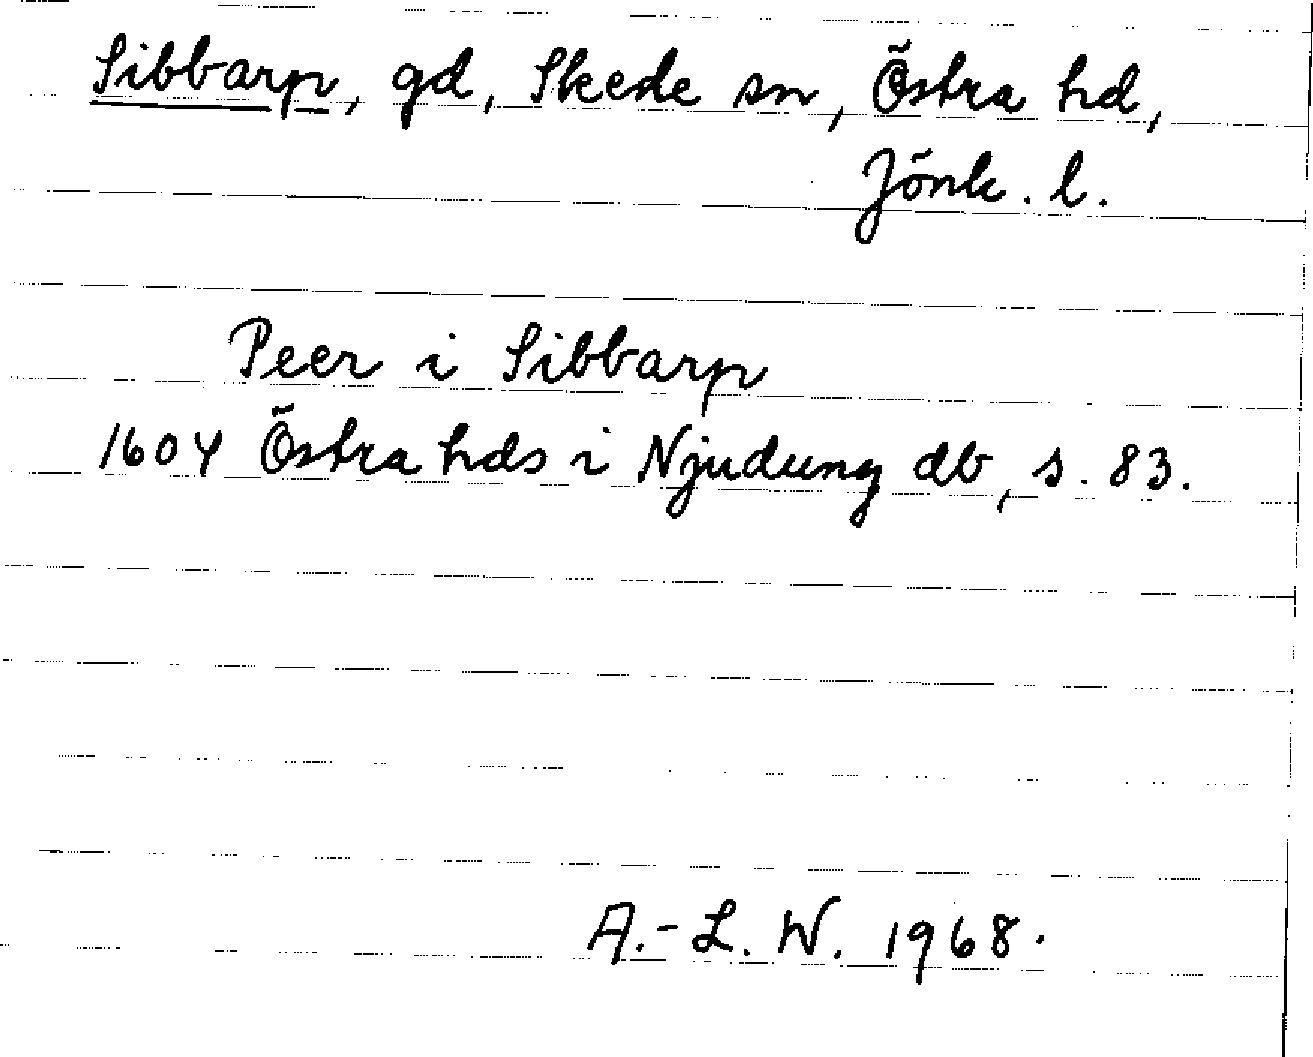 Sibbarp, gd, Skede sn, Östra hd,
Jönk. l.
Peer i Sibbarp
1604 Östra hds i Njudung db, s. 83.
A.-L. W. 1968.